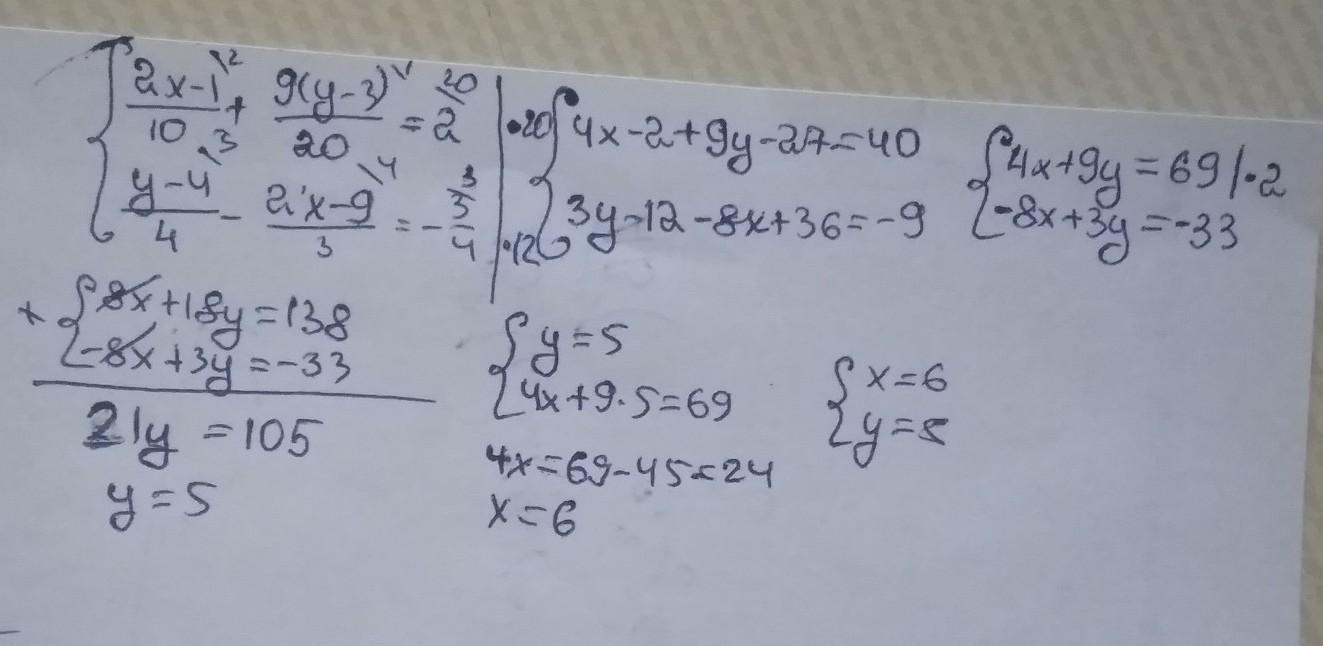 { (2x-1)\2/10 + 9(y-3)\1/20 = 2\20 |·20
(y-4)\3/4 - (2x-9)\4/3 = -3\3/4 |·12
{ 4x-2+9y-27=40
3y-12-8x+36=-9
{ 4x+9y=69 |·2
-8x+3y=-33
+ { 8x+18y=138
-8x+3y=-33
21y=105
y=5
{ y=5
4x+9·5=69
4x=69-45=24
x=6
{ x=6
y=5